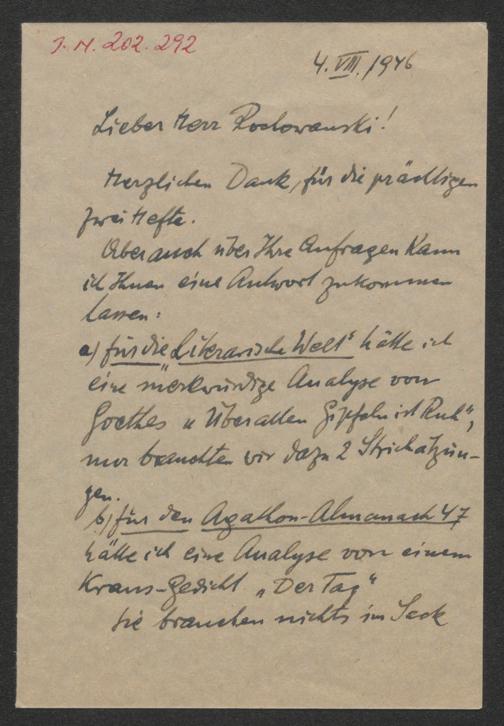 J. N. 202.292
4. VIII. 1946
Lieber Herr Rochowanski!
Herzlichen Dank, für die prächtigen
zwei Hefte.
Aber auch über Ihre Anfragen kann
ich Ihnen eine Antwort zukommen
lassen:
a) für die „Literarische Welt“ hätte ich
eine merkwürdige Analyse von
Goethes „Über allen Gipfeln ist Ruh“,
nur brauchten wir dazu 2 Strichätzun-
gen.
b) für den Agathon-Almanach 47
hätte ich eine Analyse von einem
Kraus-Gedicht „Der Tag“
Sie brauchen nichts im Sack